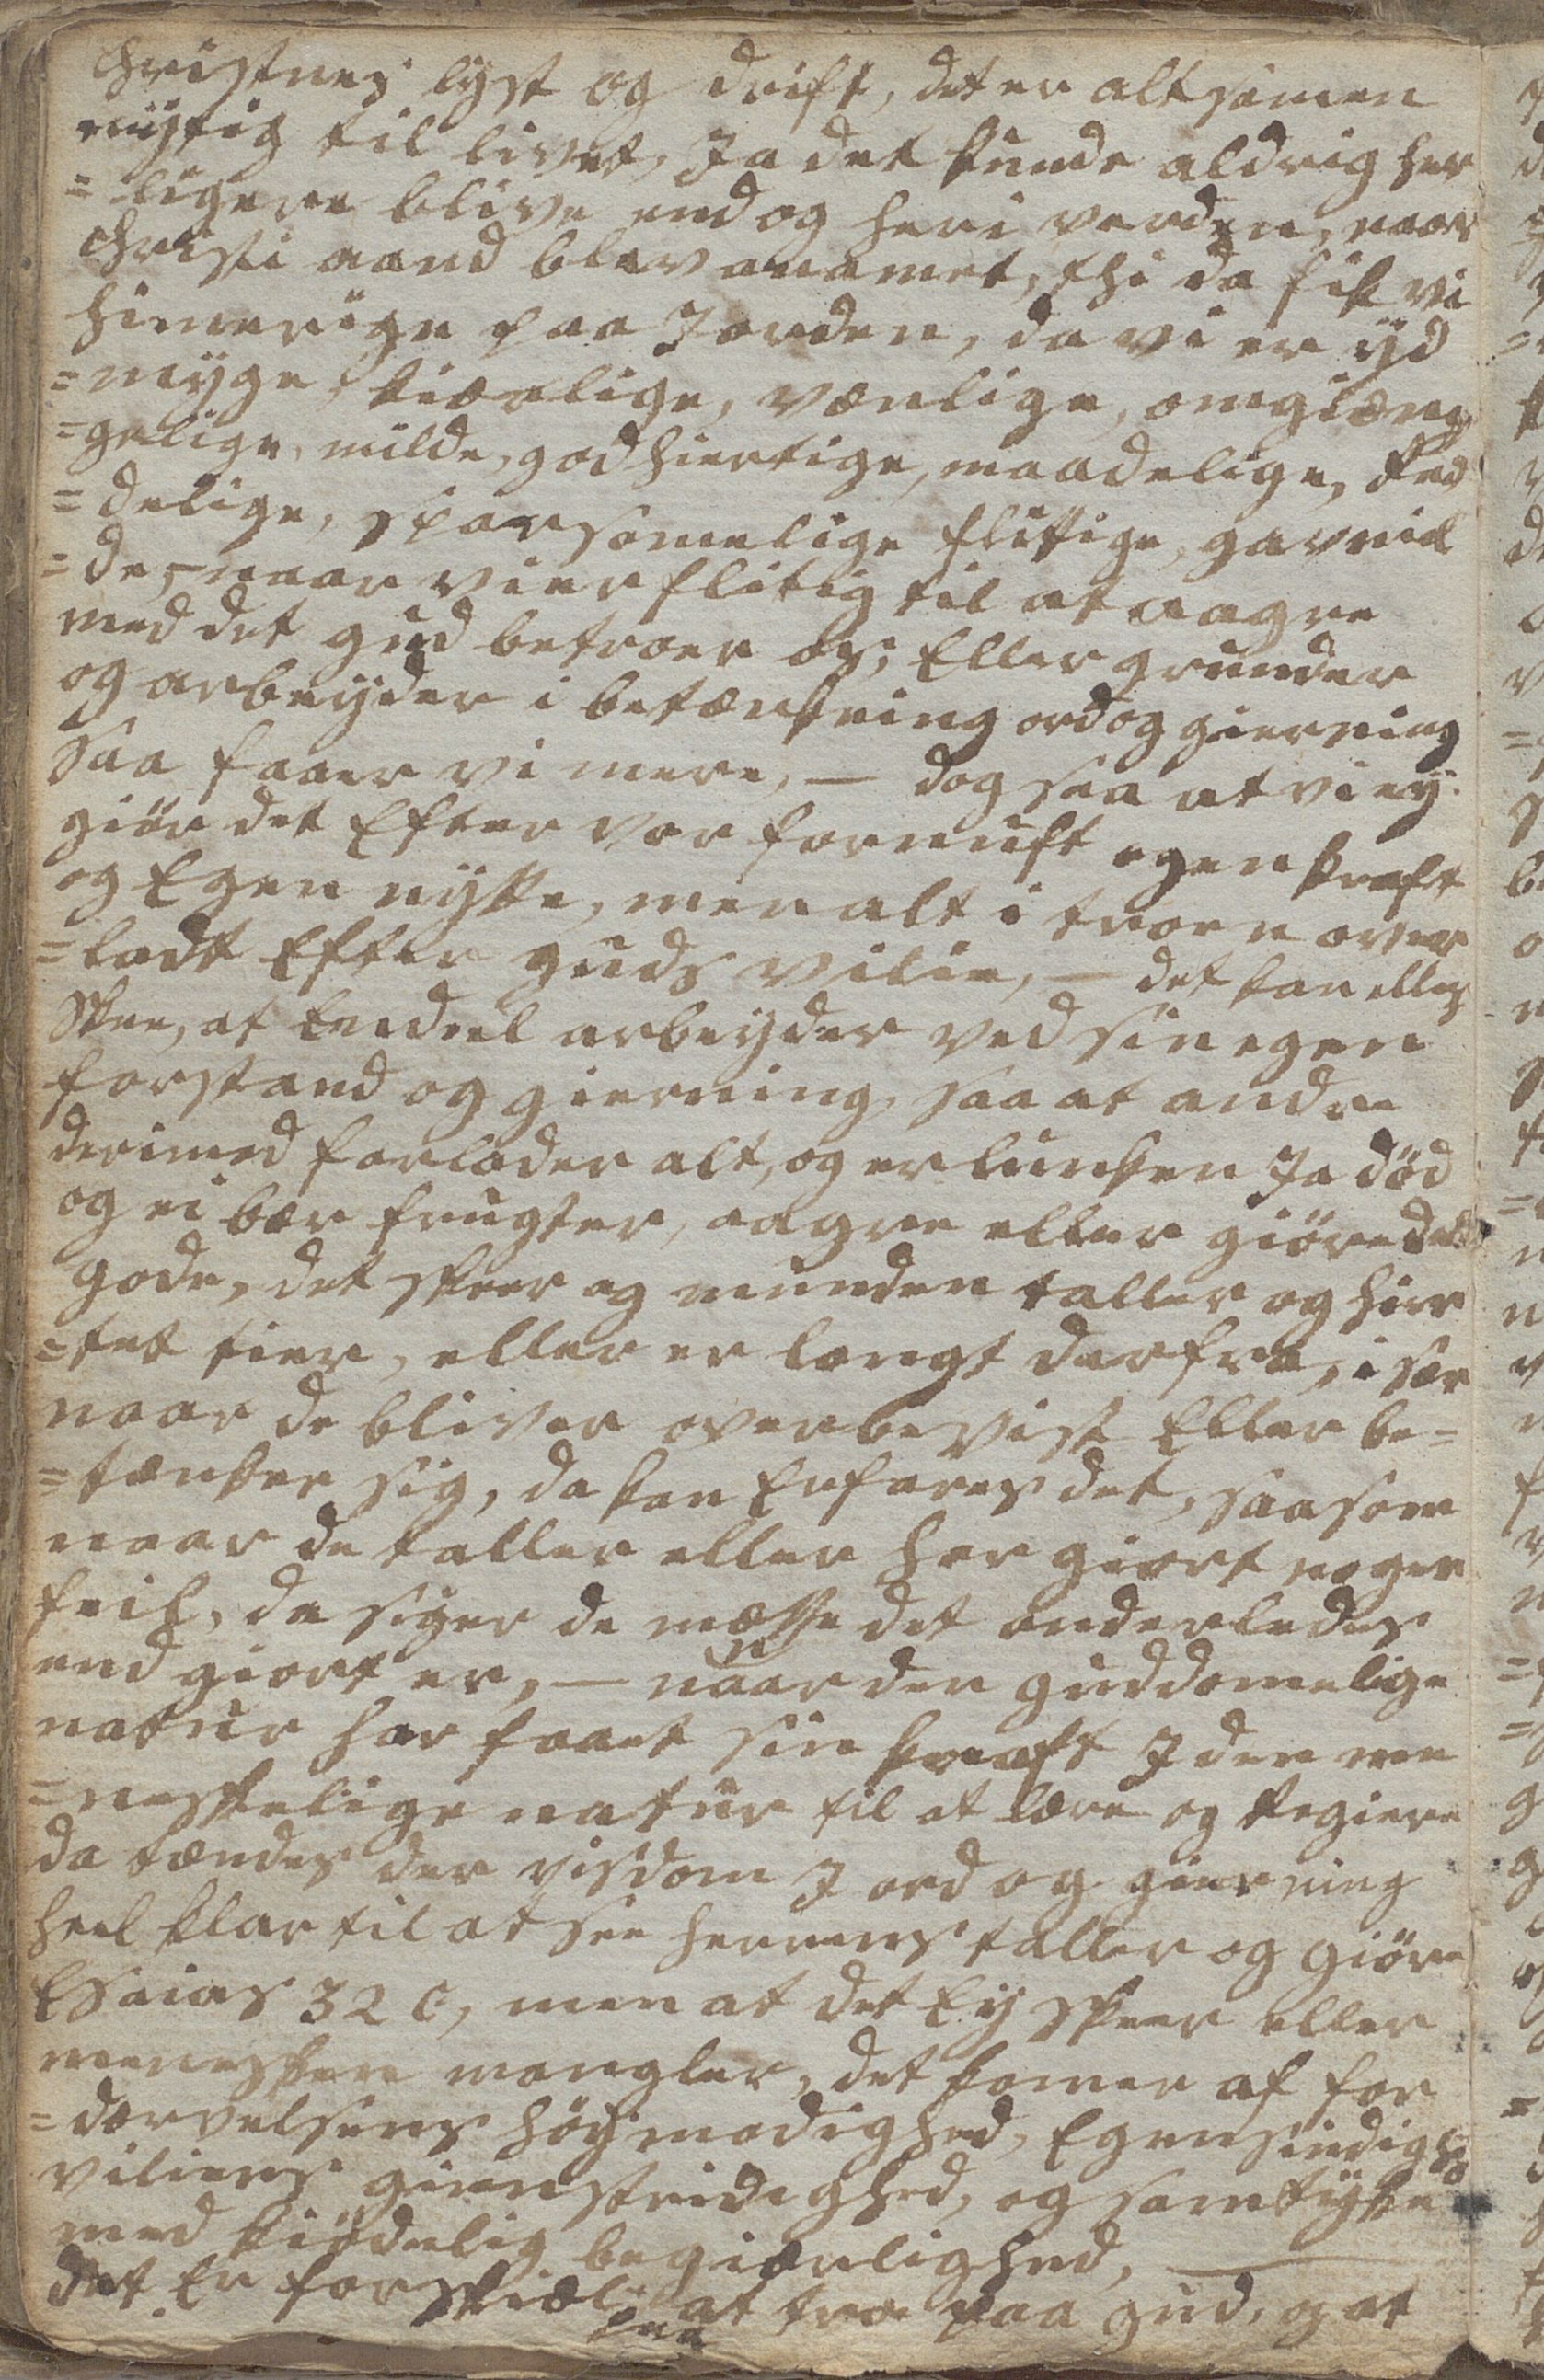 Christnes lyst og drift, det er altsamen
nÿttig til livet, Ja det kunde aldrig her
=ligere blive end og her i verden, naar
Christi aand blev anamet, thi da fik vi
himerige paa Jorden, da vi er ÿd
=mÿge, kierlige, vænlige, omgiæng
=gelige, milde, godhiertige, maadelige, Red
=delige, sparsommelige flittige, gavmil
=de, – naar vi er flitig til at aagre
med det gud betroer os, Eller grunder
og arbeÿder i betænkning ord og gierning
saa faaer vi mere, — dog saa at vi eÿ
giør det Efter vor fornuft egen kraft
og Egen nÿtte, men alt i troen over
=ladt Efter guds vilie, — det kan ellers
Skee, at Endeel arbeÿder ved sin egen
forstand og gierning, saa at andre
derimod forlader alt, og er lunken Ja død
og ei bær frugter, aagre eller giøre det
gode, det skeer og munden taller og hier
=tet tier, eller er langt derfra, i sær
naar de bliver overbevist Eller be=
=tænker sig, da kan Erfares det, saasom
naar de taller eller har giort nogen
feil, da siger de det anderledes
end giort er, — naar den guddomelige
natur har faaet sin kraft I den me
=neskelige natur til at lære og Regiere
da tændes der visdom I ord og gierning
heel klar til at see herrens taller og giøre
Esaias 32 C, men at det Eÿ skeer eller
menesken mangler, det komer af for
=dærvelsens høÿmodighed, Egensindighed
viliens gienstridighed, og samtÿke
med kiødelig begierlighed, —
det Er forskiæl paa at tro paa gud, og at